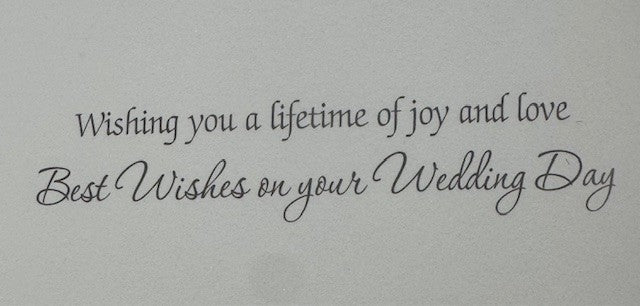 Wishing you a lifetime of joy and love
Best Wishes on your Wedding Day